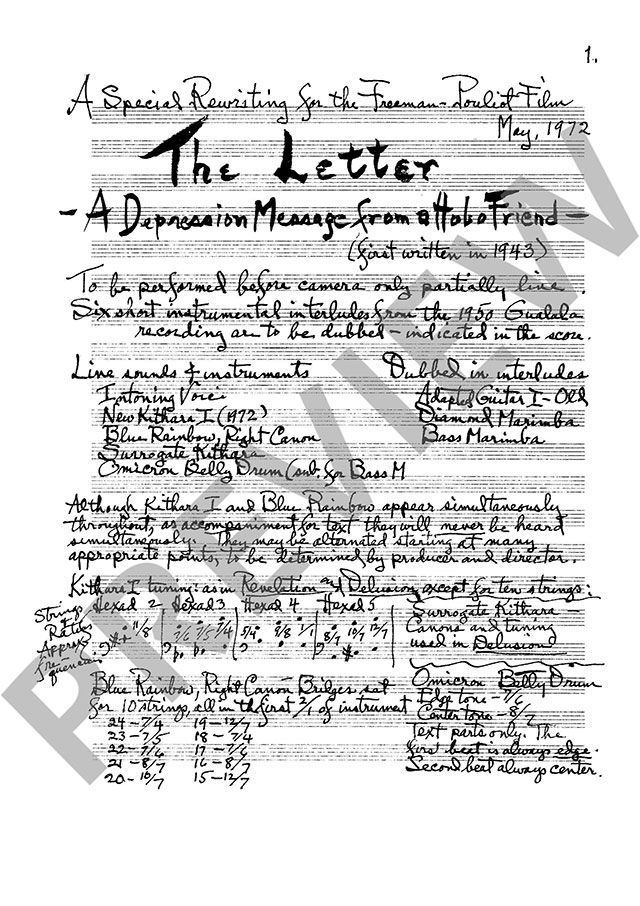 1.
A Special Rewriting for the Freeman-Pouliot Film
May, 1972
The Letter
- A Depression Message from a Hobo Friend -
(first written in 1943)
To be performed before camera only partially live.
Six short instrumental interludes from the 1950 Gualala
recording are to be dubbed - indicated in the score.
Live sounds & instruments
Intoning Voice
New Kithara I (1972)
Blue Rainbow, Right Canon
Surrogate Kithara
Omicron Belly Drum (sub. for Bass M
Dubbed in interludes
Adapted Guitar I - Old
Diamond Marimba
Bass Marimba
Although Kithara I and Blue Rainbow appear simultaneously
throughout, as accompaniment for text they will never be heard
simultaneously. They may be alternated starting at many
appropriate points, to be determined by producer and director.
Kithara I tuning: as in Revelation and Delusion except for ten strings:
Hexad 2 - Hexad 3 Hexad 4 Hexad 5
Strings
Ratios
Approx.
frequencies
11/8
7/6 7/5 7/4
9/8 1/1
8/7 10/7 12/7
Surrogate Kithara -
Canons and tuning
used in Delusion
Blue Rainbow, Right Canon - Bridges set
for 10 strings, all in the first 2/1 of instrument
24 - 7/4 19 - 12/7
23 - 7/5 18 - 7/4
22 - 7/6 17 - 7/6
21 - 8/7 16 - 8/7
20 - 10/7 15 - 12/7
Omicron Belly Drum
Edge tone - 7/6
Center tone - 8/7
Text parts only. The
first beat is always edge.
Second beat always center.
PREVIEW